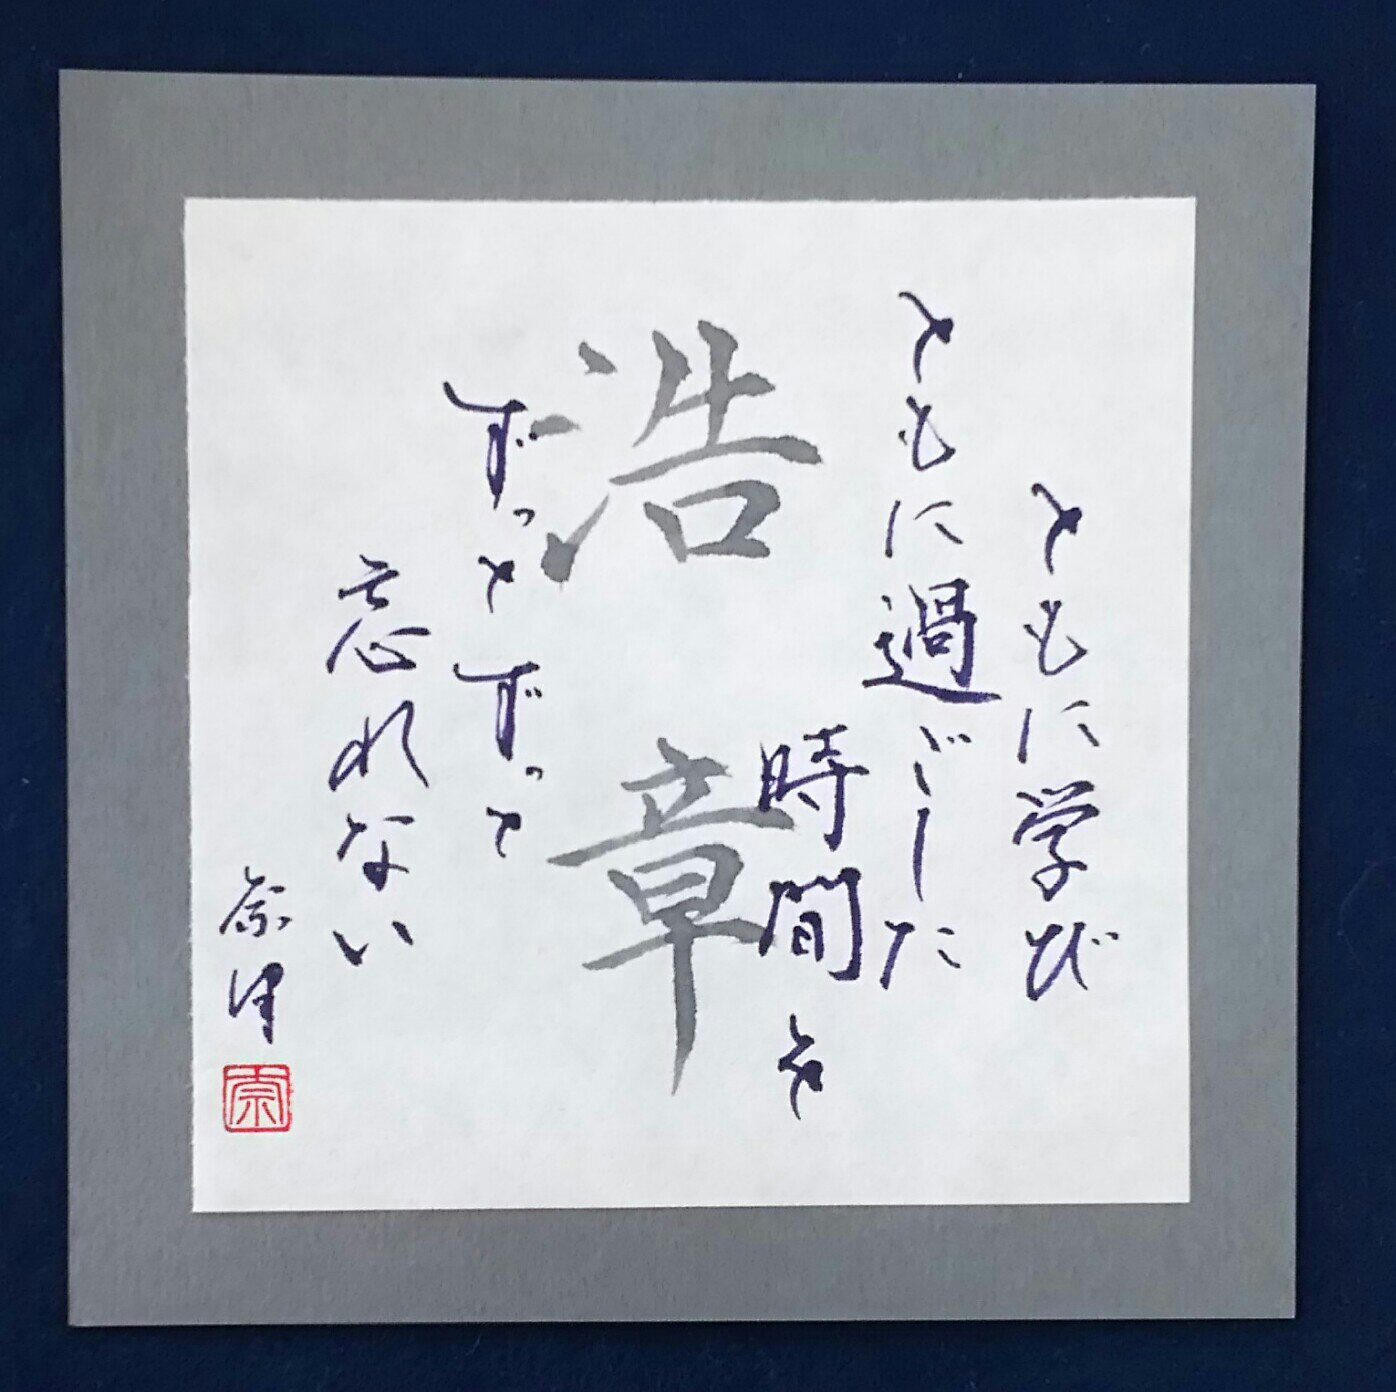 ともに学び
ともに過ごした
時間を
浩章
ずっとずっと
忘れない
奈